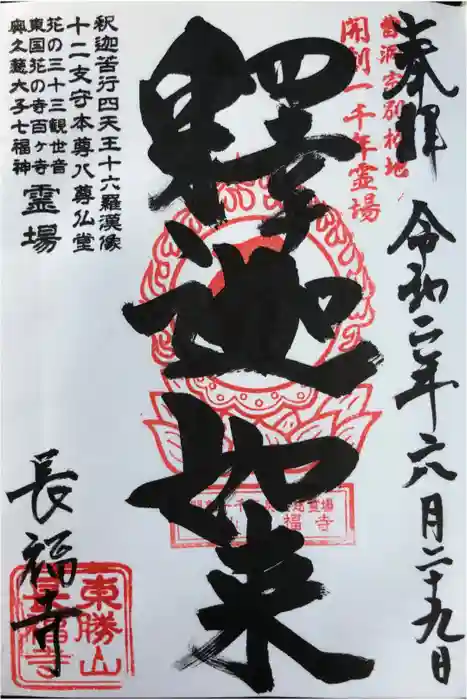 奉拝
令和二年六月二十九日
開創一千年霊場
釋迦如来
釈迦苦行四天王十六羅漢像
十二支守本尊八尊仏堂
花の三十三観世音
東国花の寺百ヶ寺
奥久慈大子七福神
霊場
長福寺
東勝山
長福寺